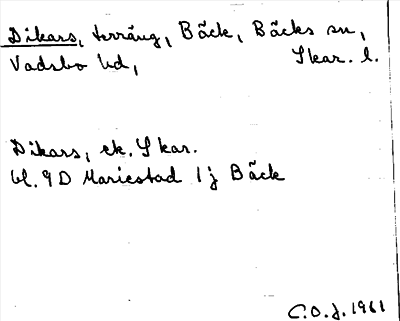 Dikars, terräng, Bäck, Bäcks sn,
Vadsbo hd, Skar. l.
Dikars, ek. Skar.
bl. 9D Mariestad 1j Bäck
C.O.J. 1961